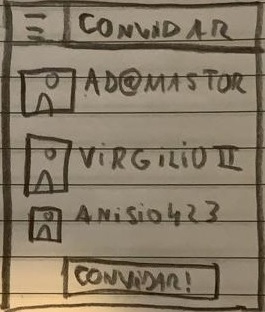 CONVIDAR
AD@MASTOR
ViRGiLiO II
ANiSiO423
CONViDAR!